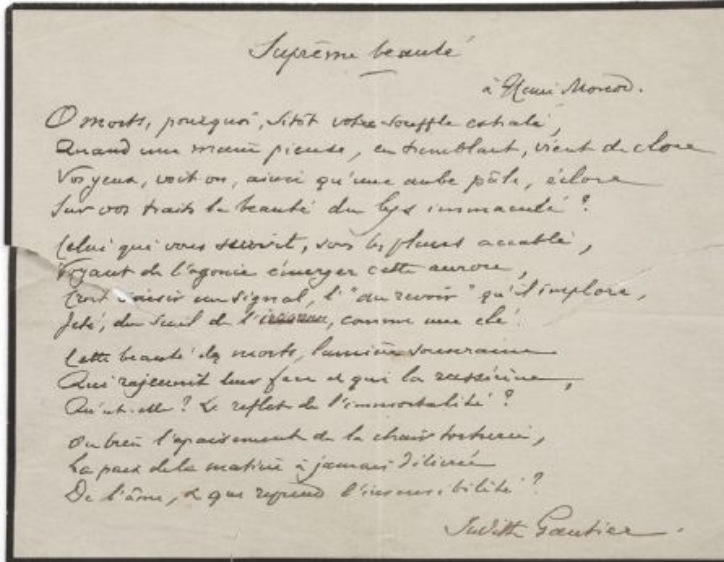 Suprême beauté
à Henri
O morts, pourquoi, sitôt votre souffle exhalé,
Quand une main pieuse, en tremblant, vient de clore
Vos yeux, voit-on, ainsi qu'une aube pâle, éclore
Sur vos traits la beauté du lys immaculé ?
Celui qui vous survit, sous les pleurs accablé,
Voyant de l'agonie émerger cette aurore,
Croit saisir un signal, l'"au revoir" qu'il implore,
Jeté, du seuil de l', comme une clé.
Cette beauté des morts, lumière souveraine
Qui rajeunit leur face et qui la rassérène,
Qu'est-elle ? Le reflet de l'immortalité ?
Ou bien l'apaisement de la chair torturée,
La paix de la matière à jamais délivrée
De l'âme, et que reprend l'insensibilité ?
Judith Gautier.